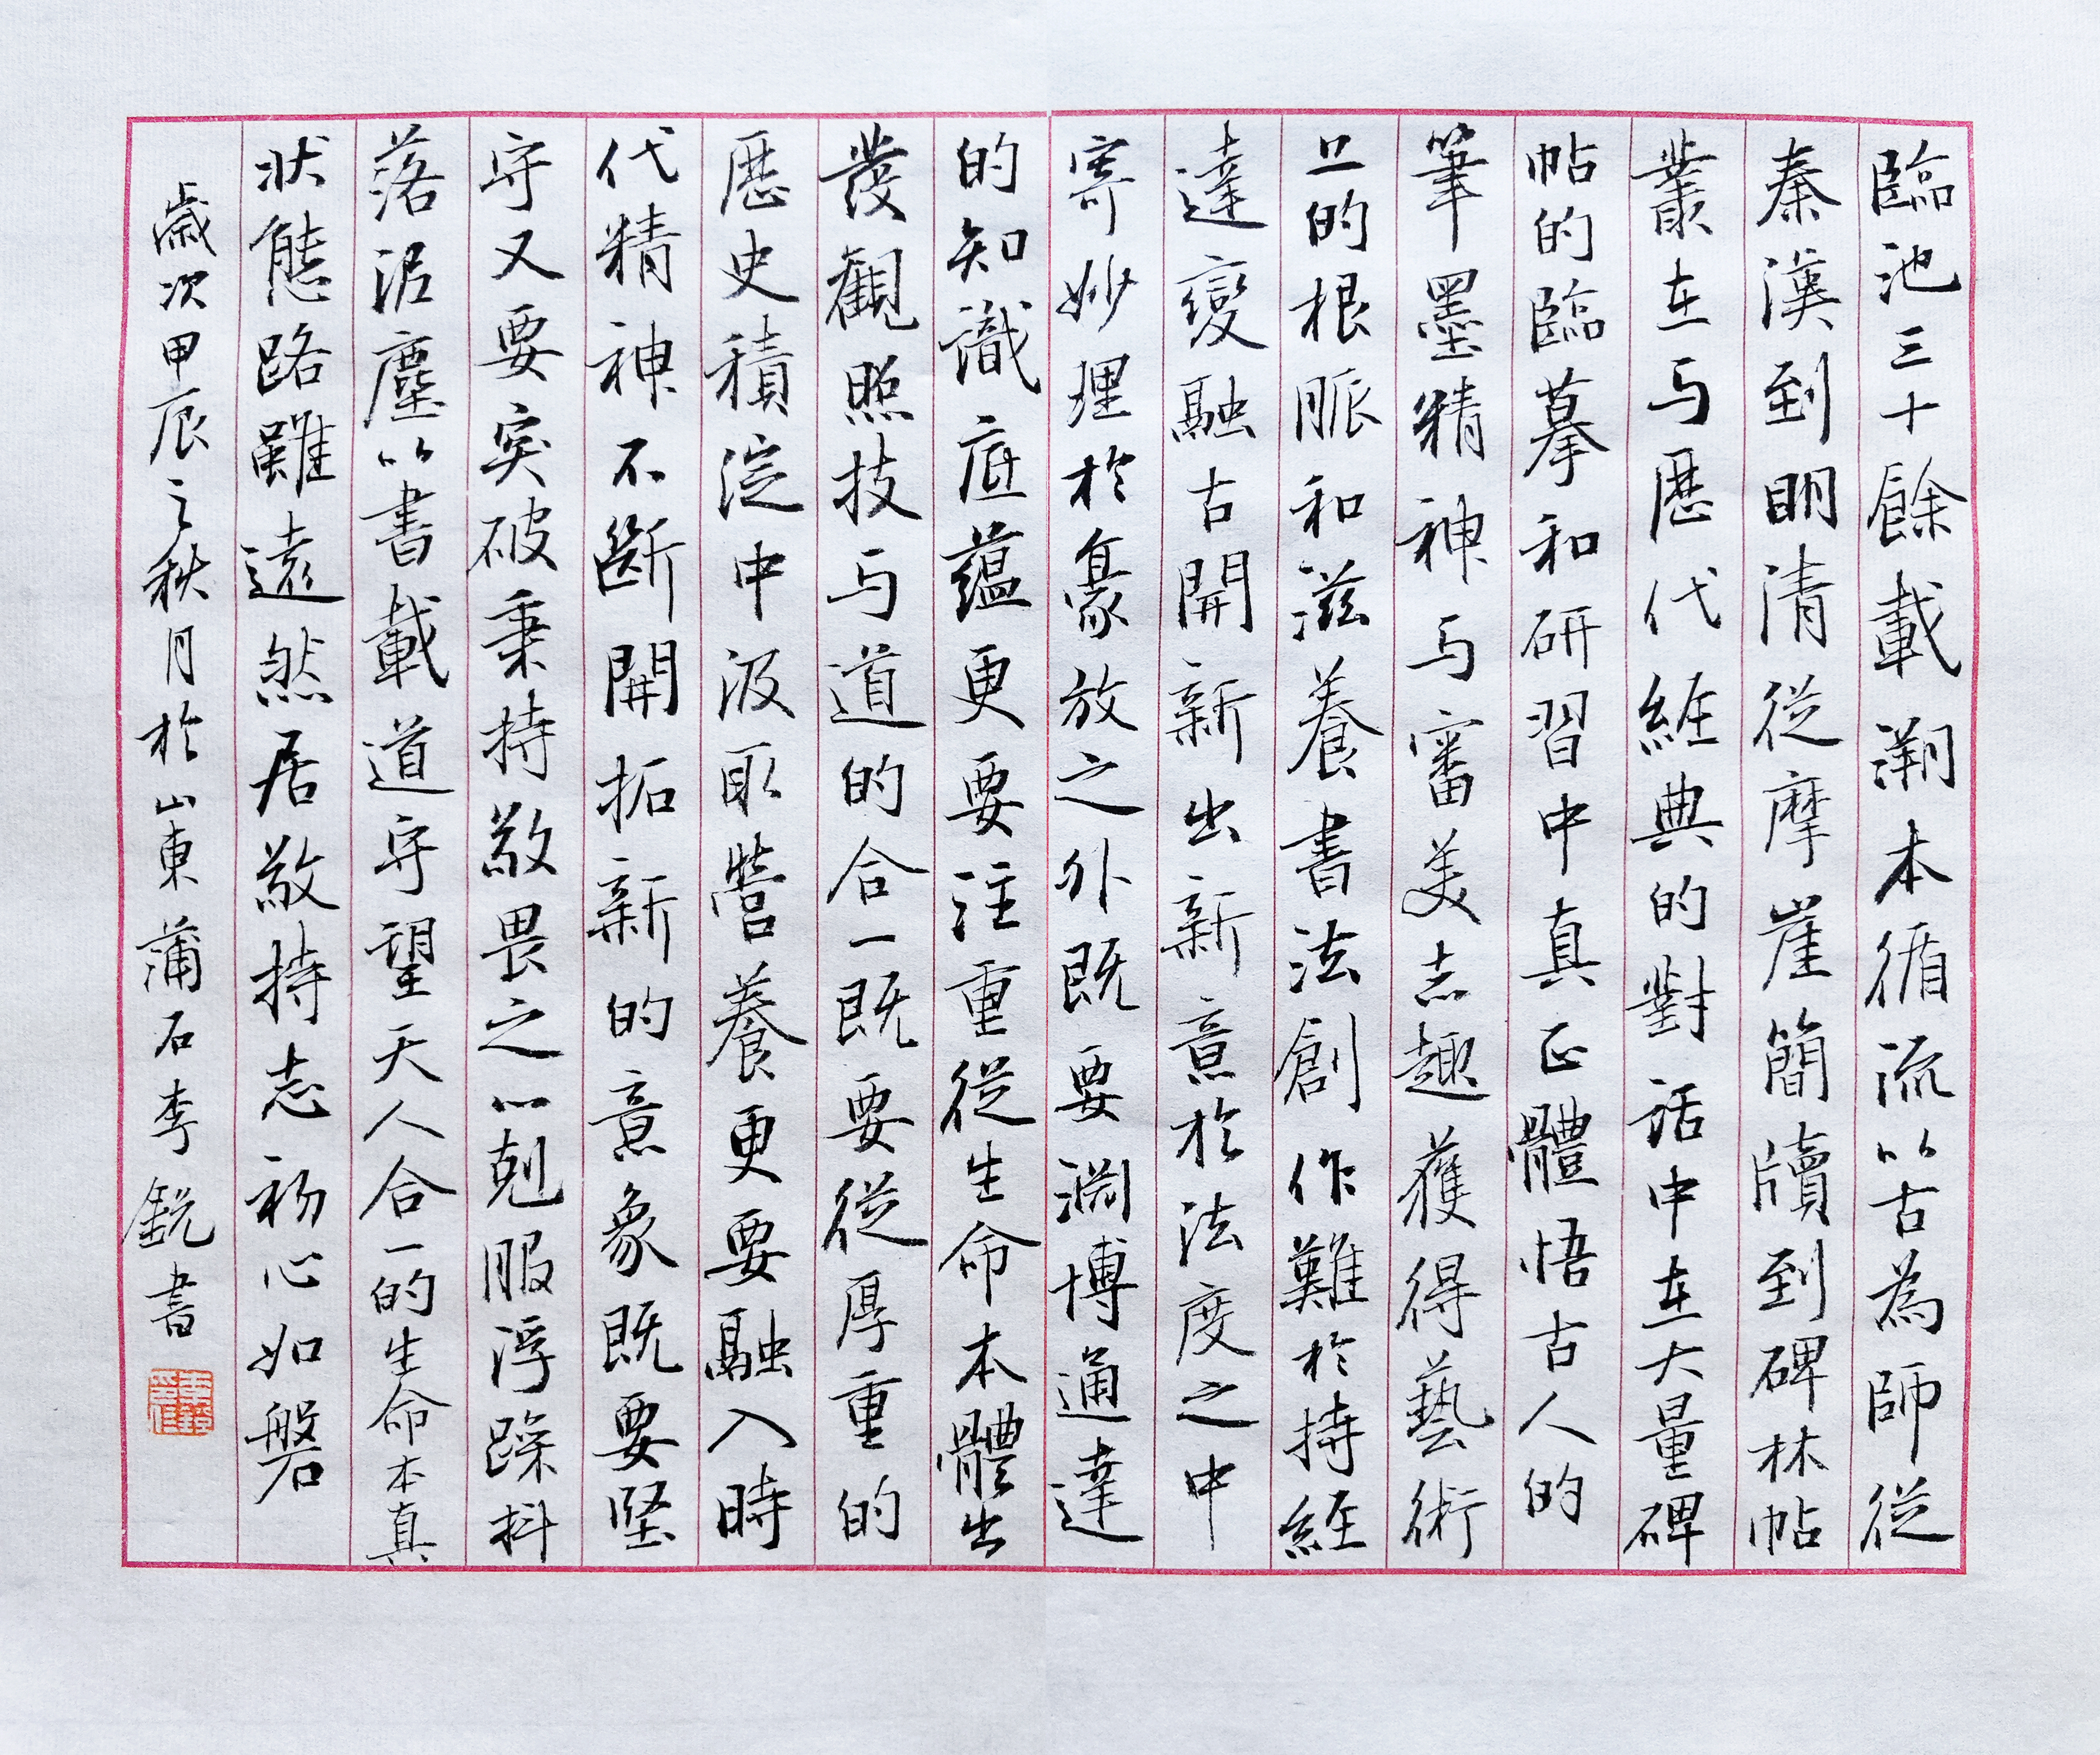 臨池三十餘載溯本循流以古為師從
秦漢到明清從摩崖簡牘到碑林帖
叢在与歷代經典的對話中在大量碑
帖的臨摹和研習中真正體悟古人的
筆墨精神与審美志趣獲得藝術
上的根脈和滋養書法創作難於持經
達變融古開新出新意於法度之中
寄妙理於豪放之外既要淵博通達
的知識底蘊更要注重從生命本體出
發觀照技与道的合一既要從厚重的
歷史積淀中汲取營養更要融入時
代精神不斷開拓新的意象既要堅
守又要突破秉持敬畏之心剋服浮躁抖
落泥塵以書載道守望天人合一的生命本真
狀態路雖遠然居敬持志初心如磐
歲次甲辰之秋月於山東蒲石李銳書